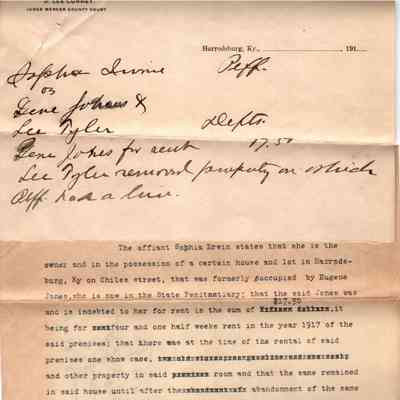 JUDGE MERCER COUNTY COURT
Harrodsburg, Ky., 191
Sophia Irvine Peff.
vs
Gene Johns &
Lee Tyler Defts.
Gene Jones for rent 17.50
Lee Tyler removed property on which
Plff. had a lien.
The affiant Sophia Erwin states that she is the
owner and in the possession of a certain house and lot in Harrods-
burg, Ky on Chiles street, that was formerly accupied by Eugene
Jones,she is now in the State Penitmatiary; that the said Jones was
$17.50
and is indebted to her for rent in the sum of ,it
being for four and one half weeks rent in the year 1917 of the
said premises; that there was at the time of the rental of said
premises one show case,
and other property in said room and that the same remained
in said house until after the abandonment of the same